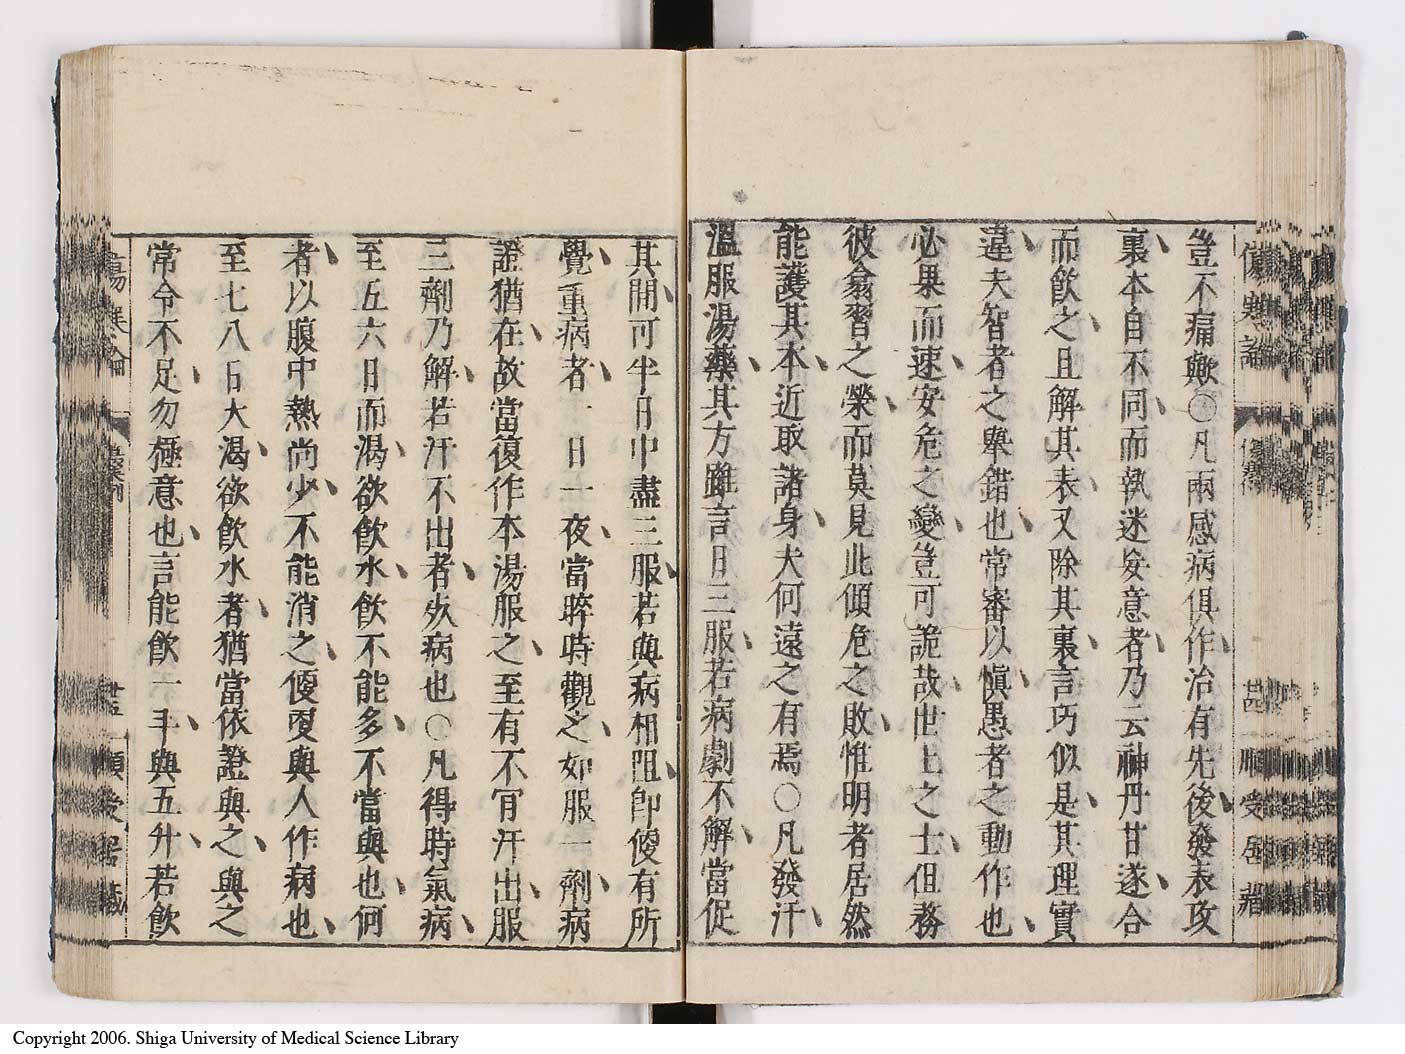 豈不痛歟○凡兩感病俱作治有先後發表攻
裏本自不同而執迷妄意者乃云神丹甘遂合
而飲之且解其表又除其裏言巧似是其理實
違夫智者之舉錯也常審以愼愚者之動作也
必果而速安危之變豈可詭哉世上之士但務
彼翕習之榮而莫見此傾危之敗惟明者居然
能護其本近取諸身夫何遠之有焉○凡發汗
溫服湯藥其方雖言日三服若病劇不解當促
其間可半日中盡三服若與病相阻卽便有所
覺重病者一日一夜當晬時觀之如服一劑病
證猶在故當復作本湯服之至有不肎汗出服
三劑乃解若汗不出者死病也○凡得時氣病
至五六日而渴欲飲水飲不能多不當與也何
者以腹中熱尚少不能消之便更與人作病也
至七八日大渴欲飲水者猶當依證與之與之
常令不足勿極意也言能飲一斗與五升若飲
傷寒論
傷寒例
順受居藏
Copyright 2006. Shiga University of Medical Science Library